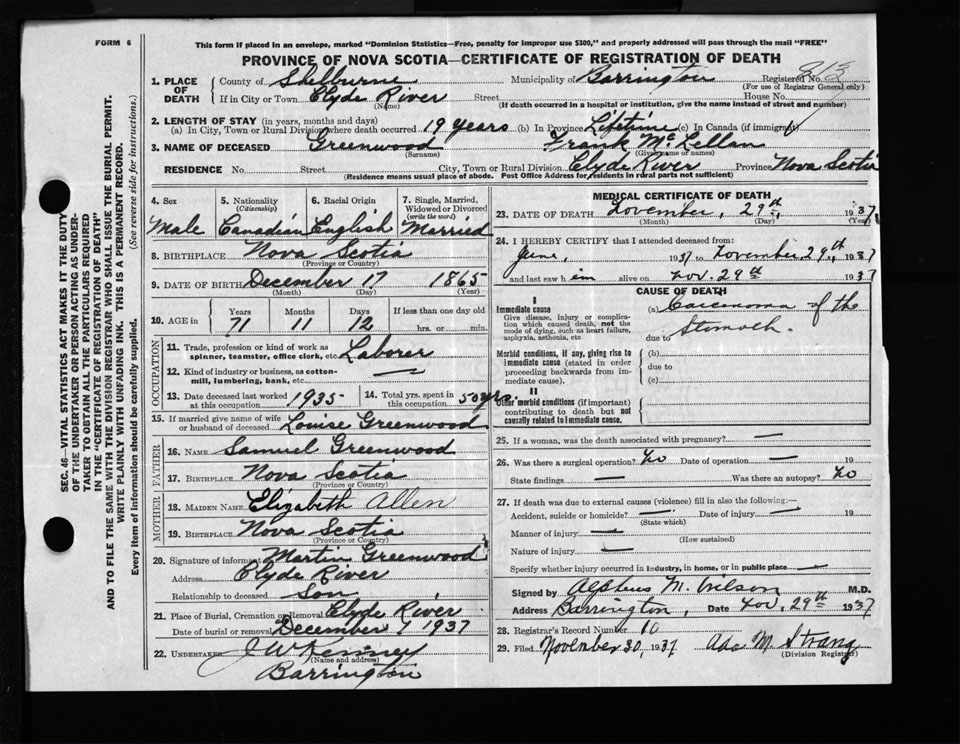 FORM 6
This form if placed in an envelope, marked "Dominion Statistics—Free, penalty for improper use $300," and properly addressed will pass through the mail "FREE"
PROVINCE OF NOVA SCOTIA—CERTIFICATE OF REGISTRATION OF DEATH
1. PLACE OF DEATH County of Shelburne Municipality of Barrington Registered No. 813
(For use of Registrar General only)
If in City or Town Clyde River Street House No.
(Name) (If death occurred in a hospital or institution, give the name instead of street and number)
2. LENGTH OF STAY (in years, months and days)
(a) In City, Town or Rural Division where death occurred 19 years (b) In Province Lifetime (c) In Canada (if immigrant)
3. NAME OF DECEASED Greenwood Frank McLellan
(Surname) (Given name or names)
RESIDENCE No. Street City, Town or Rural Division Clyde River Province Nova Scotia
(Residence means usual place of abode. Post Office Address for residents in rural parts not sufficient)
4. Sex Male
5. Nationality (Citizenship) Canadian
6. Racial Origin English
7. Single, Married, Widowed or Divorced (write the word) Married
8. BIRTHPLACE Nova Scotia
(Province or Country)
9. DATE OF BIRTH December 17 1865
(Month) (Day) (Year)
10. AGE in Years Months Days If less than one day old
71 11 12 hrs. or min.
OCCUPATION
11. Trade, profession or kind of work as spinner, teamster, office clerk, etc. Laborer
12. Kind of industry or business, as cotton-mill, lumbering, bank, etc. —
13. Date deceased last worked at this occupation 1935
14. Total yrs. spent in this occupation 50 yrs.
15. If married give name of wife or husband of deceased Louise Greenwood
FATHER
16. NAME Samuel Greenwood
17. BIRTHPLACE Nova Scotia
(Province or Country)
MOTHER
18. MAIDEN NAME Elizabeth Allen
19. BIRTHPLACE Nova Scotia
(Province or Country)
20. Signature of informant Martin Greenwood
Address Clyde River
Relationship to deceased Son
21. Place of Burial, Cremation or Removal Clyde River
Date of burial or removal December 1 1937
22. UNDERTAKER J W Kenney
(Name and address)
Barrington
MEDICAL CERTIFICATE OF DEATH
23. DATE OF DEATH November, 29th, 1937
(Month) (Day)
24. I HEREBY CERTIFY that I attended deceased from:
June, 1937 to November 29th, 1937
and last saw him alive on Nov. 29th 1937
CAUSE OF DEATH
I
Immediate cause
Give disease, injury or complication which caused death, not the mode of dying, such as heart failure, asphyxia, asthenia, etc.
(a) Carcenoma of the
Stomach.
due to
Morbid conditions, if any, giving rise to immediate cause (stated in order proceeding backwards from immediate cause).
(b)
due to
(c)
II
Other morbid conditions (if important) contributing to death but not causally related to immediate cause.
25. If a woman, was the death associated with pregnancy? —
26. Was there a surgical operation? No Date of operation — 19
State findings — Was there an autopsy? No
27. If death was due to external causes (violence) fill in also the following:—
Accident, suicide or homicide? — Date of injury — 19
(State which)
Manner of injury —
(How sustained)
Nature of injury —
Specify whether injury occurred in industry, in home, or in public place —
Signed by Alpheus M. Wilson M.D.
Address Barrington, Date Nov. 29th 1937
28. Registrar's Record Number 10
29. Filed November 30, 1937 Ada M. Strang
(Division Registrar)
SEC. 46—VITAL STATISTICS ACT MAKES IT THE DUTY
OF THE UNDERTAKER OR PERSON ACTING AS UNDER-
TAKER TO OBTAIN ALL THE PARTICULARS REQUIRED
IN THE "CERTIFICATE OF REGISTRATION OF DEATH"
AND TO FILE THE SAME WITH THE DIVISION REGISTRAR WHO SHALL ISSUE THE BURIAL PERMIT.
WRITE PLAINLY WITH UNFADING INK. THIS IS A PERMANENT RECORD.
Every item of information should be carefully supplied. (See reverse side for instructions.)